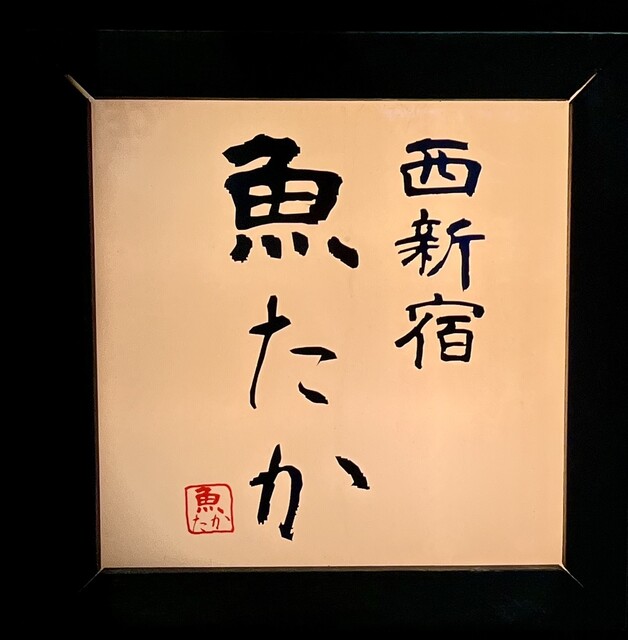 西新宿
魚たか
魚
たか